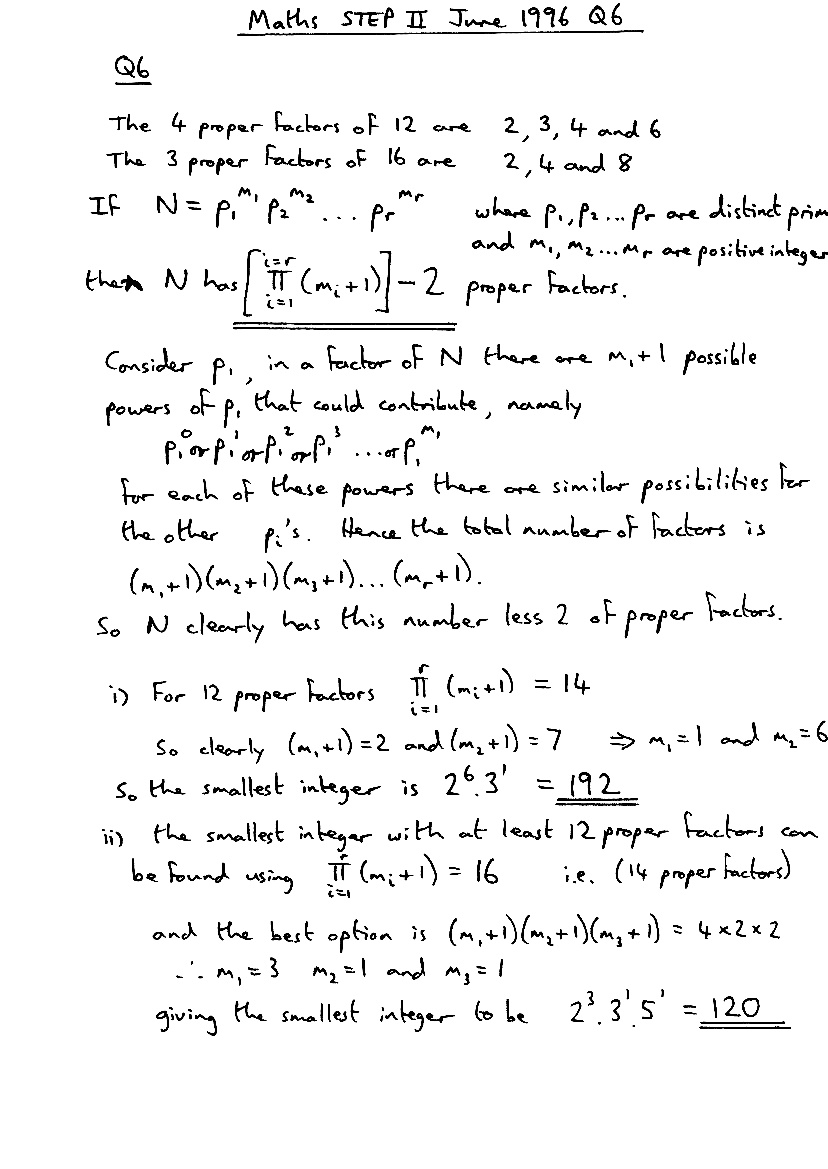 Maths STEP II June 1996 Q6
Q6
The 4 proper factors of 12 are 2, 3, 4 and 6
The 3 proper factors of 16 are 2, 4 and 8
If N = p₁^m₁ p₂^m₂ ... pr^mr where p₁, p₂ ... pr are distinct prim
and m₁, m₂ ... mr are positive integer
then N has [∏_{i=1}^{i=r} (mᵢ+1)] - 2 proper factors.
Consider p₁, in a factor of N there are m₁+1 possible
powers of p₁ that could contribute, namely
p₁⁰ or p₁¹ or p₁² or p₁³ ... or p₁^m₁
for each of these powers there are similar possibilities for
the other pᵢ's. Hence the total number of factors is
(m₁+1)(m₂+1)(m₃+1)... (mr+1).
So N clearly has this number less 2 of proper factors.
i) For 12 proper factors ∏_{i=1}^{r} (mᵢ+1) = 14
So clearly (m₁+1) = 2 and (m₂+1) = 7 ⇒ m₁=1 and m₂=6
So the smallest integer is 2⁶.3¹ = 192
ii) the smallest integer with at least 12 proper factors can
be found using ∏_{i=1}^{r} (mᵢ+1) = 16 i.e. (14 proper factors)
and the best option is (m₁+1)(m₂+1)(m₃+1) = 4×2×2
∴ m₁=3 m₂=1 and m₃=1
giving the smallest integer to be 2³.3¹.5¹ = 120